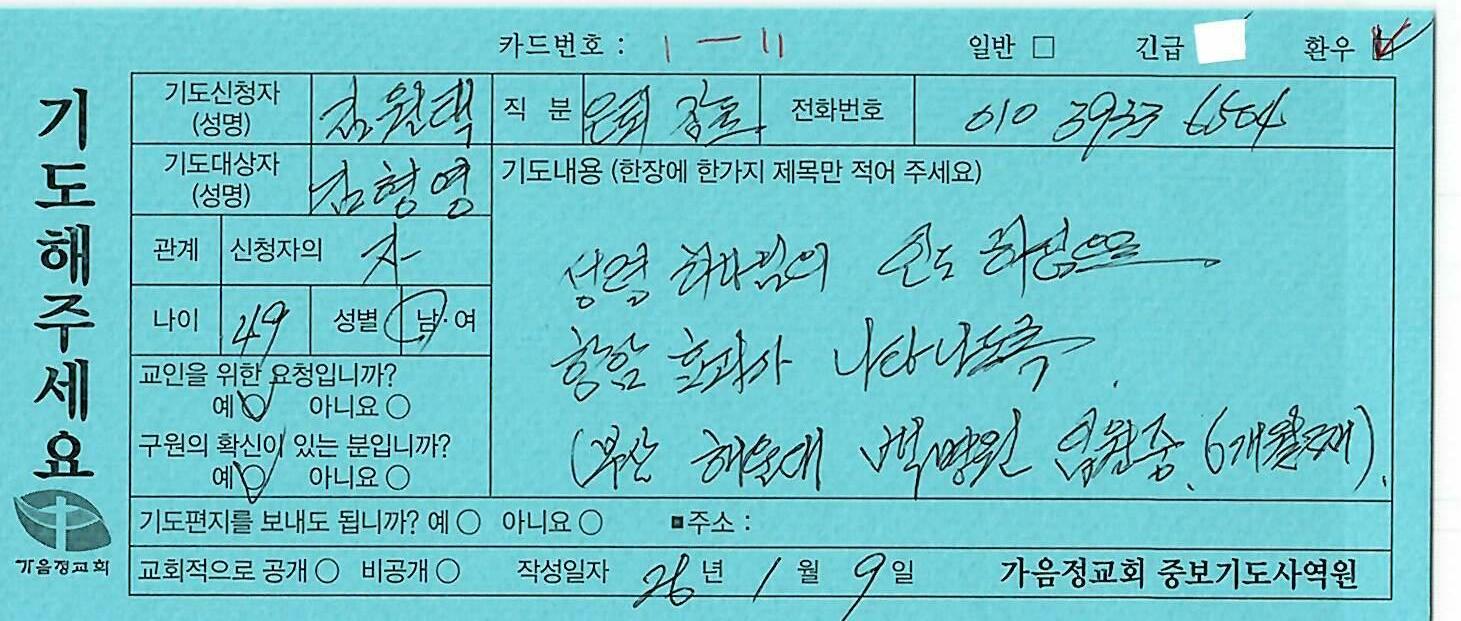 카드번호 : 1 - 11 일반 □ 긴급 환우 ☑
기도해주세요
기도신청자 (성명) 김월택 직 분 은퇴 장로 전화번호 010 3933 6504
기도대상자 (성명) 김형영 기도내용 (한장에 한가지 제목만 적어 주세요)
관계 신청자의 자
나이 49 성별 남·여
성령 하나님의 인도 하심으로
항암 효과가 나타나도록
(부산 해운대 백병원 입원중. 6개월째).
교인을 위한 요청입니까?
예 ○ 아니요 ○
구원의 확신이 있는 분입니까?
예 ○ 아니요 ○
기도편지를 보내도 됩니까? 예 ○ 아니요 ○ ■주소 :
교회적으로 공개 ○ 비공개 ○ 작성일자 26년 1월 9일 가음정교회 중보기도사역원
가음정교회